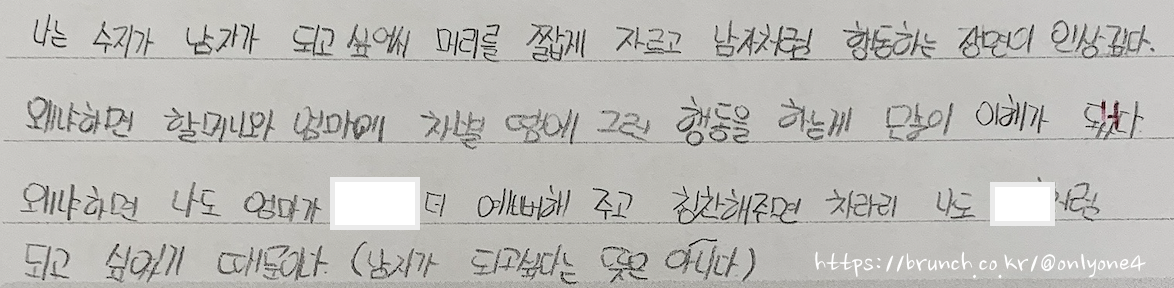 나는 수지가 남자가 되고 싶어서 머리를 짧게 자르고 남자처럼 행동하는 장면이 인상 깊다.
왜냐하면 할머니와 엄마에 차별 땜에 그런 행동을 하는게 많이 이해가 됐다
왜냐하면 나도 엄마가 더 예뻐해 주고 칭찬해주면 차라리 나도 처럼
되고 싶었기 때문이다. (남자가 되고싶다는 뜻은 아니다.)
https://brunch.co.kr/@onlyone4